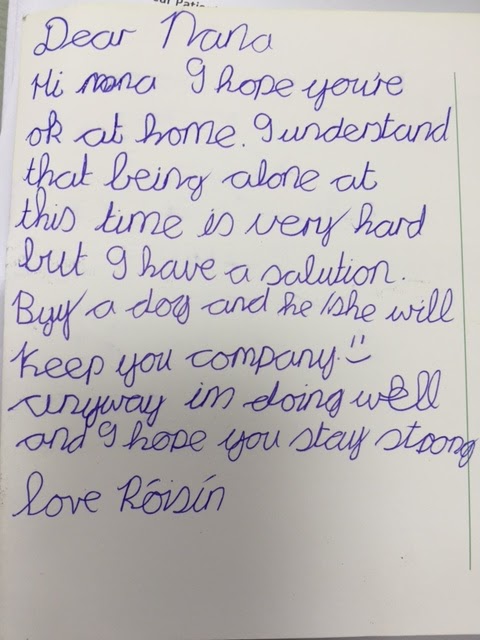 Dear Nana
Hi nana I hope you're
ok at home. I understand
that being alone at
this time is very hard
but I have a salution.
Byy a dog and he/she will
keep you company. :)
anyway im doing well
and I hope you stay strong
love Róisín